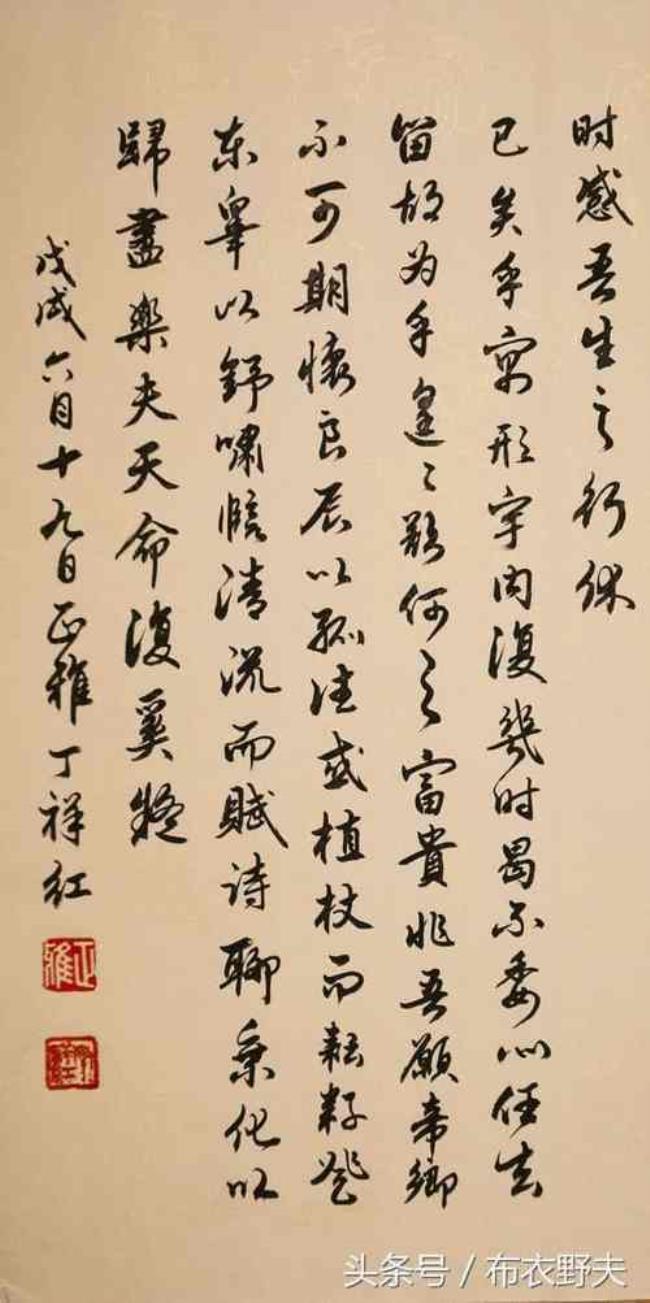 时感吾生之行休
已矣乎寓形宇内復幾时曷不委心任去
留胡为乎遑〻欲何之富貴非吾願帝鄉
不可期懷良辰以孤往或植杖而耘耔登
东皋以舒嘯臨清流而賦诗聊乘化以
歸盡樂夫天命復奚疑
戊戌六月十九日正雅丁祥红
正雅
头条号 / 布衣野夫